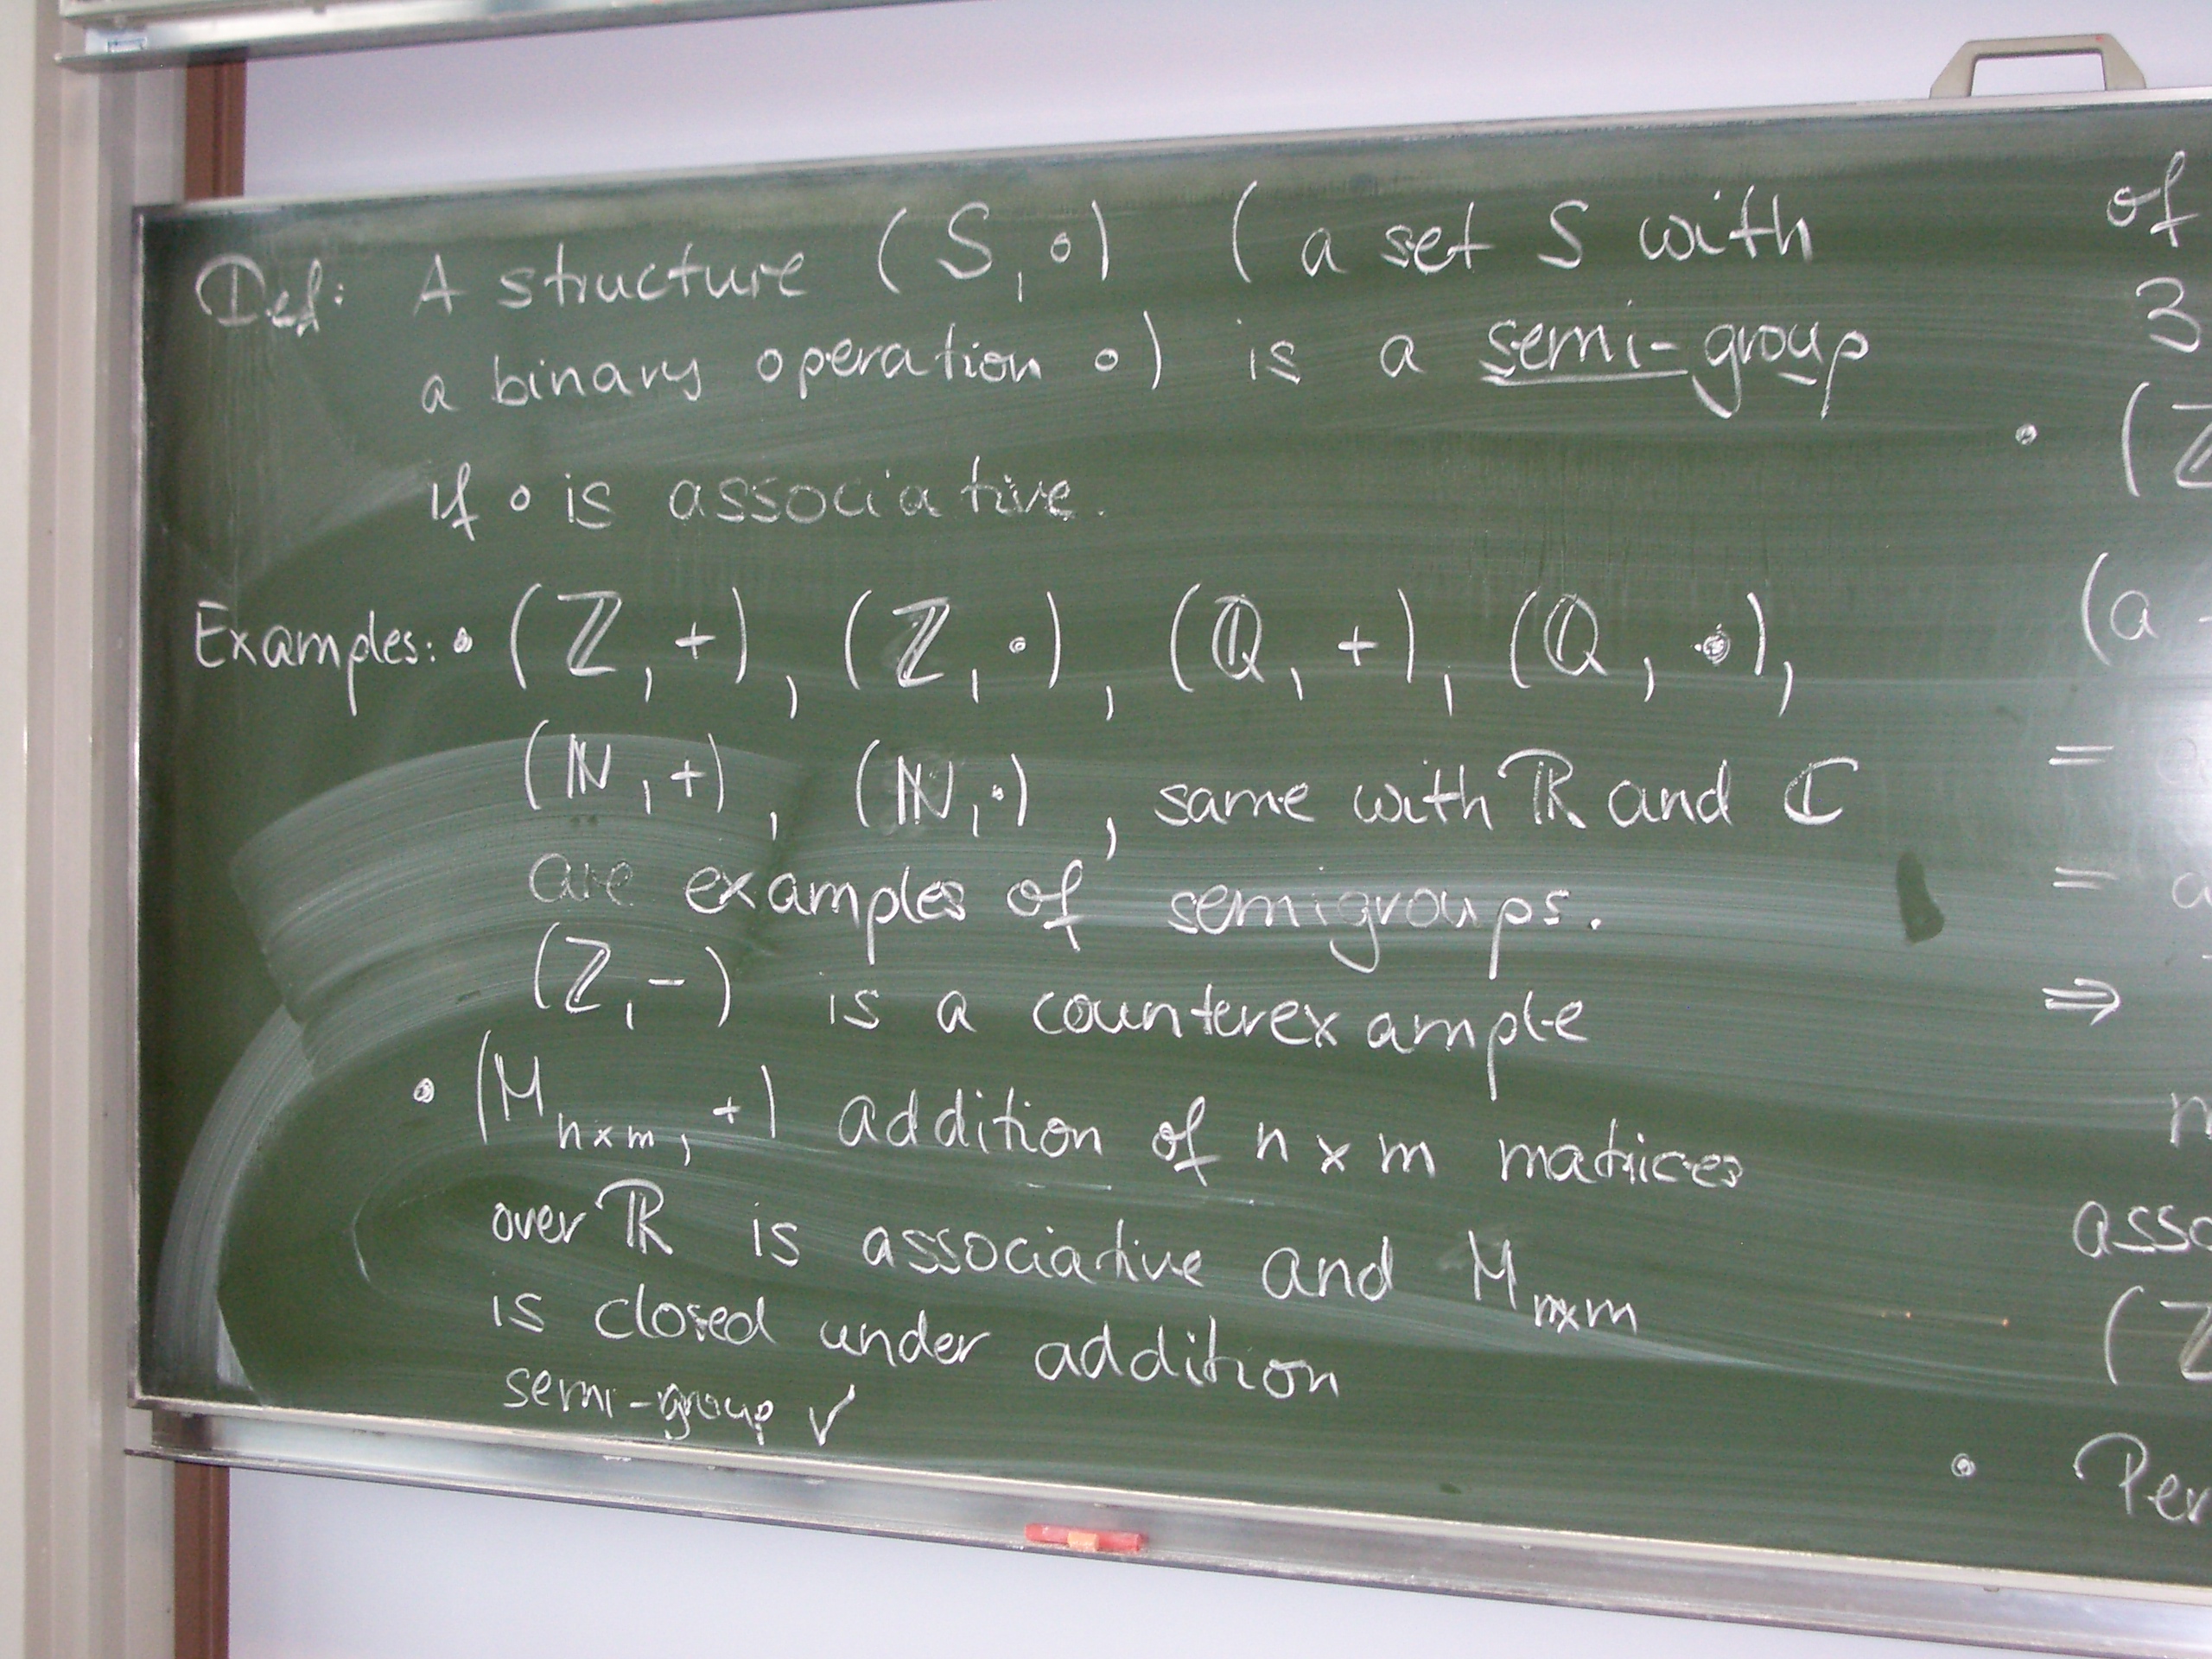 Def: A structure (S, ∘) (a set S with
a binary operation ∘) is a semi-group
if ∘ is associative.
Examples: • (ℤ, +), (ℤ, ·), (ℚ, +), (ℚ, ·),
(ℕ, +), (ℕ, ·), same with ℝ and ℂ
are examples of semigroups.
(ℤ, −) is a counterexample
• (M_{n×m}, +) addition of n×m matrices
over ℝ is associative and M_{n×m}
is closed under addition
semi-group ✓
of
3
• (ℤ
(a -
=
= a
⇒
n
asso
(ℤ
• Per